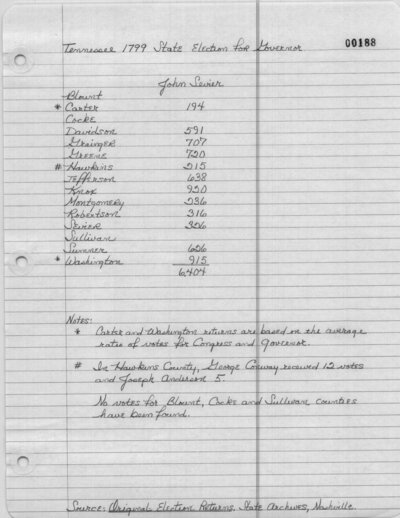 Tennessee 1799 State Election for Governor 00188
John Sevier
Blount
* Carter 194
Cocke
Davidson 591
Grainger 707
Greene 720
# Hawkins 215
Jefferson 638
Knox 920
Montgomery 236
Robertson 316
Sevier 326
Sullivan
Sumner 626
* Washington 915
6,404
Notes:
* Carter and Washington returns are based on the average
ratio of votes for Congress and Governor.
# In Hawkins County, George Conway received 12 votes
and Joseph Anderson 5.
No votes for Blount, Cocke and Sullivan counties
have been found.
Source: Original Election Returns. State Archives, Nashville.